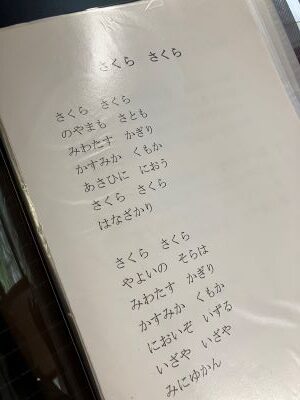 さくら さくら
さくら さくら
のやまも さとも
みわたす かぎり
かすみか くもか
あさひに におう
さくら さくら
はなざかり
さくら さくら
やよいの そらは
みわたす かぎり
かすみか くもか
においぞ いずる
いざや いざや
みにゆかん